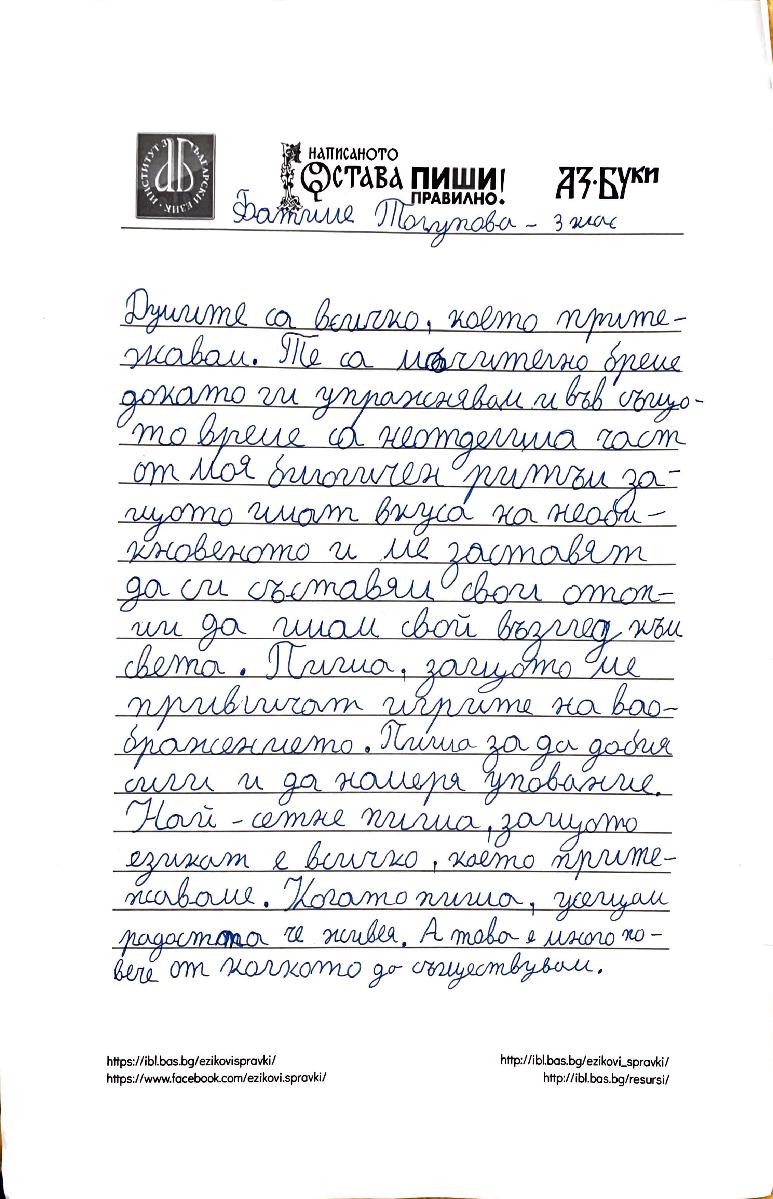 ИНСТИТУТ ЗА БЪЛГАРСКИ ЕЗИК
НАПИСАНОТО
ОСТАВА ПИШИ
ПРАВИЛНО!
АЗ·БУКИ
Фатиме - 3 клас
Думите са всичко, което прите-
жавам. Те са мъчително бреме
докато ги упражнявам и във също-
то време са неотделима част
от моя биологичен ритъм за-
щото имат вкуса на необи-
кновеното и ме заставят
да си съставям свои отоп-
ии да имам свой възглед към
света. Пиша, защото ме
привличат игрите на вао-
бражението. Пиша за да добия
сили и да намеря упование.
Най-сетне пиша, защото
езикат е всичко, което прите-
жаваме. Когато пиша, усещам
радостта че живея. А това е много по-
вече от колкото да съществувам.
https://ibl.bas.bg/ezikovispravki/
https://www.facebook.com/ezikovi.spravki/
http://ibl.bas.bg/ezikovi_spravki/
http://ibl.bas.bg/resursi/